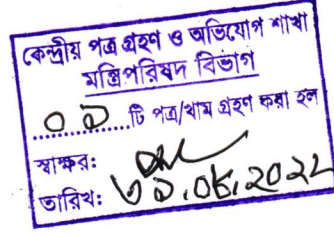 কেন্দ্রীয় পত্র গ্রহণ ও অভিযোগ শাখা
মন্ত্রিপরিষদ বিভাগ
০১ টি পত্র/খাম গ্রহণ করা হল
স্বাক্ষর:
তারিখ: ৩১.০৮.২০২২